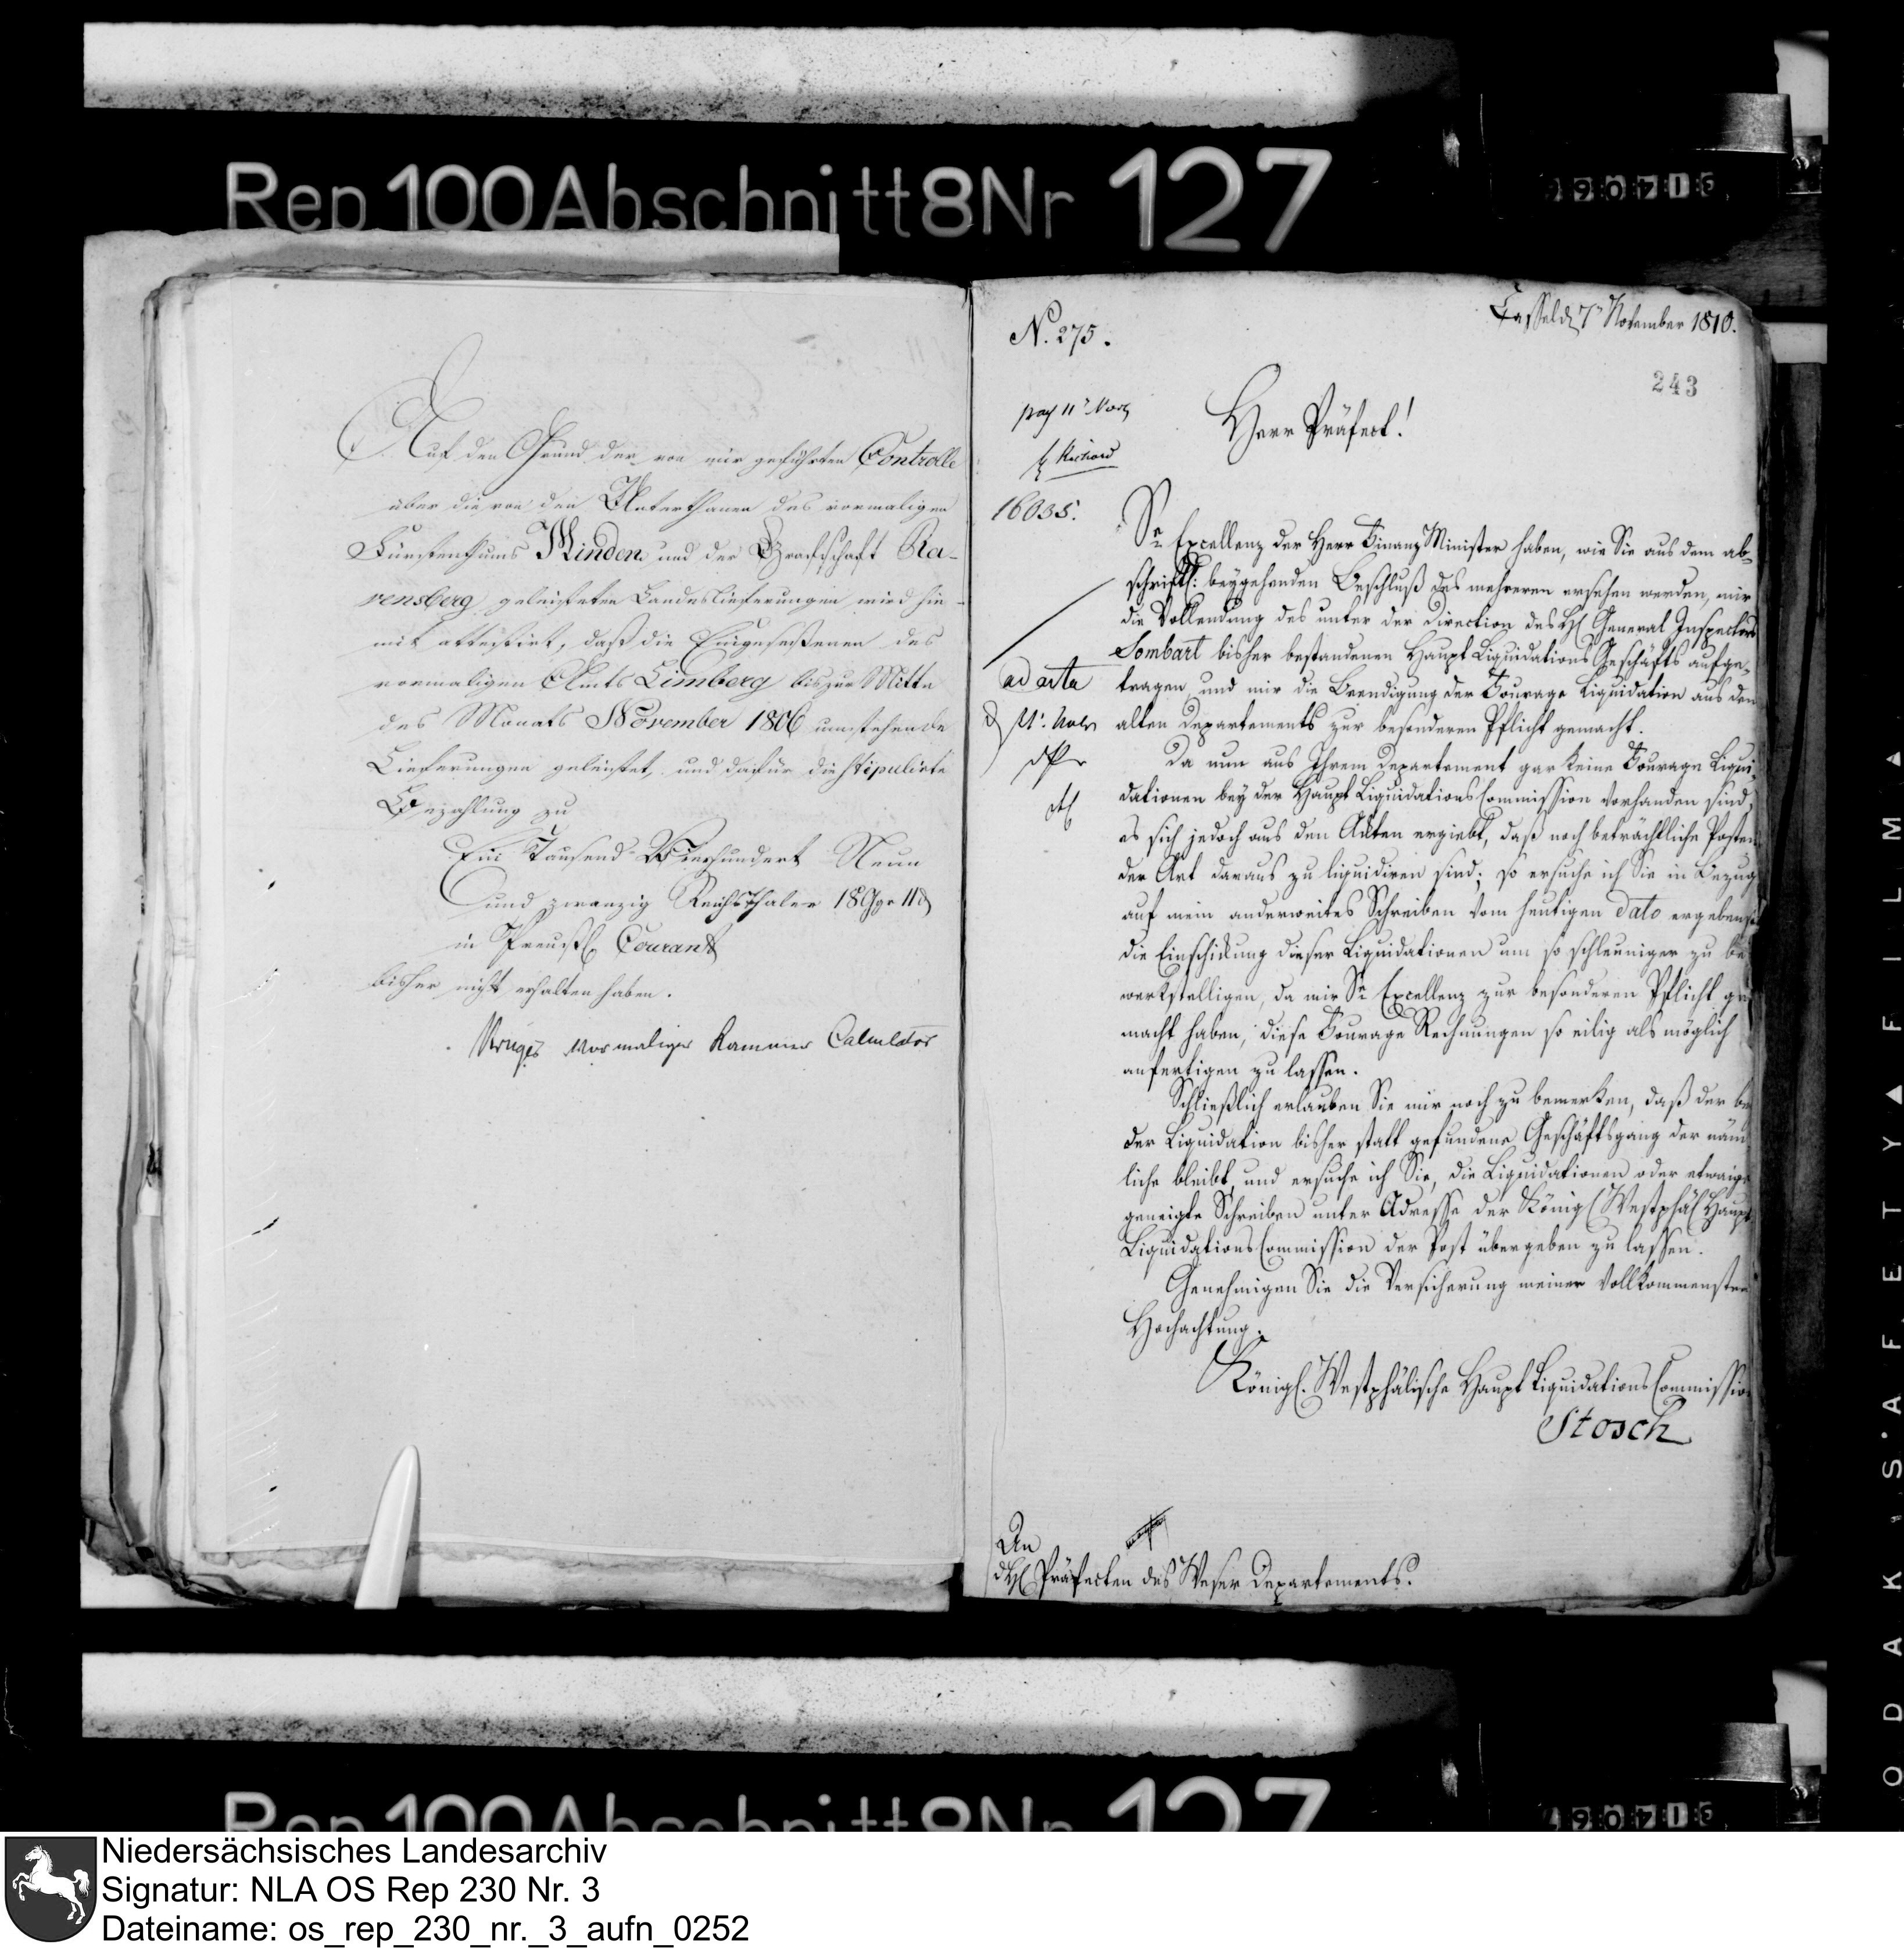 Rep 100 Abschnitt 8 Nr 127
Auf den Grund der von mir geführten Controlle
über die von den Unterthanen des vormaligen
Fürstenthums Minden und der Grafschaft Ra-
vensberg geleisteten Landeslieferungen wird hie-
mit attestirt, daß die Eingesessenen des
vormaligen Amts Limberg bis zur Mitte
des Monats November 1806 umstehende
Lieferungen geleistet, und dafür die stipulirte
Bezahlung zu
Ein Tausend Vierhundert Neun
und zwanzig Reichsthaler 18 Ggr 11 d
in Preuß Courant
bisher nicht erhalten haben.
vormaliger Kammer Calculator
N. 275.
Cassel d 7 November 1810.
243
Herr Präfect!
16035.
ad acta
Sr Excellenz der Herr Finanz Minister haben, wie Sie aus dem ab-
schriftl: beygehenden Beschluß des mehreren ersehen werden, mir
die Vollendung des unter der Direction des H General Inspectors
Sombart bisher bestandenen Haupt Liquidations Geschäfts aufge-
tragen und mir die Beendigung der Fourage Liquidation aus den
alten Departements zur besonderen Pflicht gemacht.
Da nun aus Ihrem Departement gar keine Fourage Liqui-
dationen bey der Haupt Liquidations Commission vorhanden sind,
es sich jedoch aus den Acten ergiebt, daß noch beträchtliche Posten
der Art daraus zu liquidiren sind; so ersuche ich Sie in Bezug
auf mein anderweites Schreiben vom heutigen dato ergebenst
die Einschickung dieser Liquidationen um so schleuniger zu be
werkstelligen, da mir Sr Excellenz zur besonderen Pflicht ge
macht haben, diese Fourage Rechnungen so eilig als möglich
anfertigen zu lassen.
Schließlich erlauben Sie mir noch zu bemerken, daß der bey
der Liquidation bisher statt gefundene Geschäftsgang der näm
liche bleibt, und ersuche ich Sie, die Liquidationen oder etwaige
geneigte Schreiben unter Adresse der Königl Westphäl Haupt
Liquidations Commission der Post übergeben zu lassen.
Genehmigen Sie die Versicherung meiner vollkommensten
Hochachtung.
Königl. Westphälische Haupt Liquidations Commission
Stosch
An
d H Präfecten des Weser Departements.
KODAK SAFETY FILM
Rep 100 Abschnitt 8 Nr 127
Niedersächsisches Landesarchiv
Signatur: NLA OS Rep 230 Nr. 3
Dateiname: os_rep_230_nr._3_aufn_0252